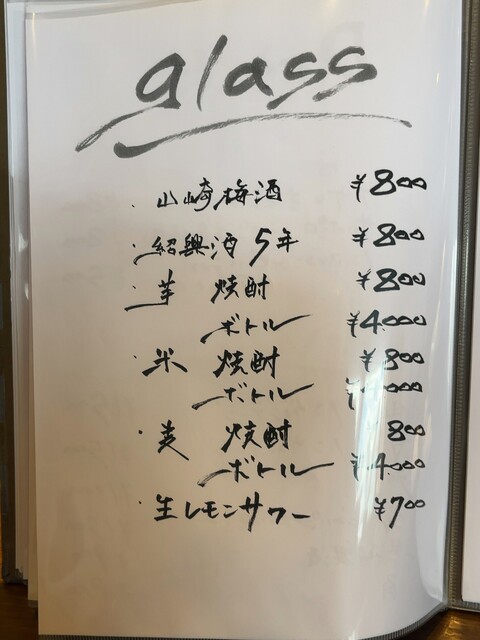 glass
・山崎梅酒 ¥800
・紹興酒 5年 ¥800
・芋 焼酎 ¥800
ボトル ¥4.000
・米 焼酎 ¥800
ボトル ¥4000
・麦 焼酎 ¥800
ボトル ¥4.000
・生レモンサワー ¥700